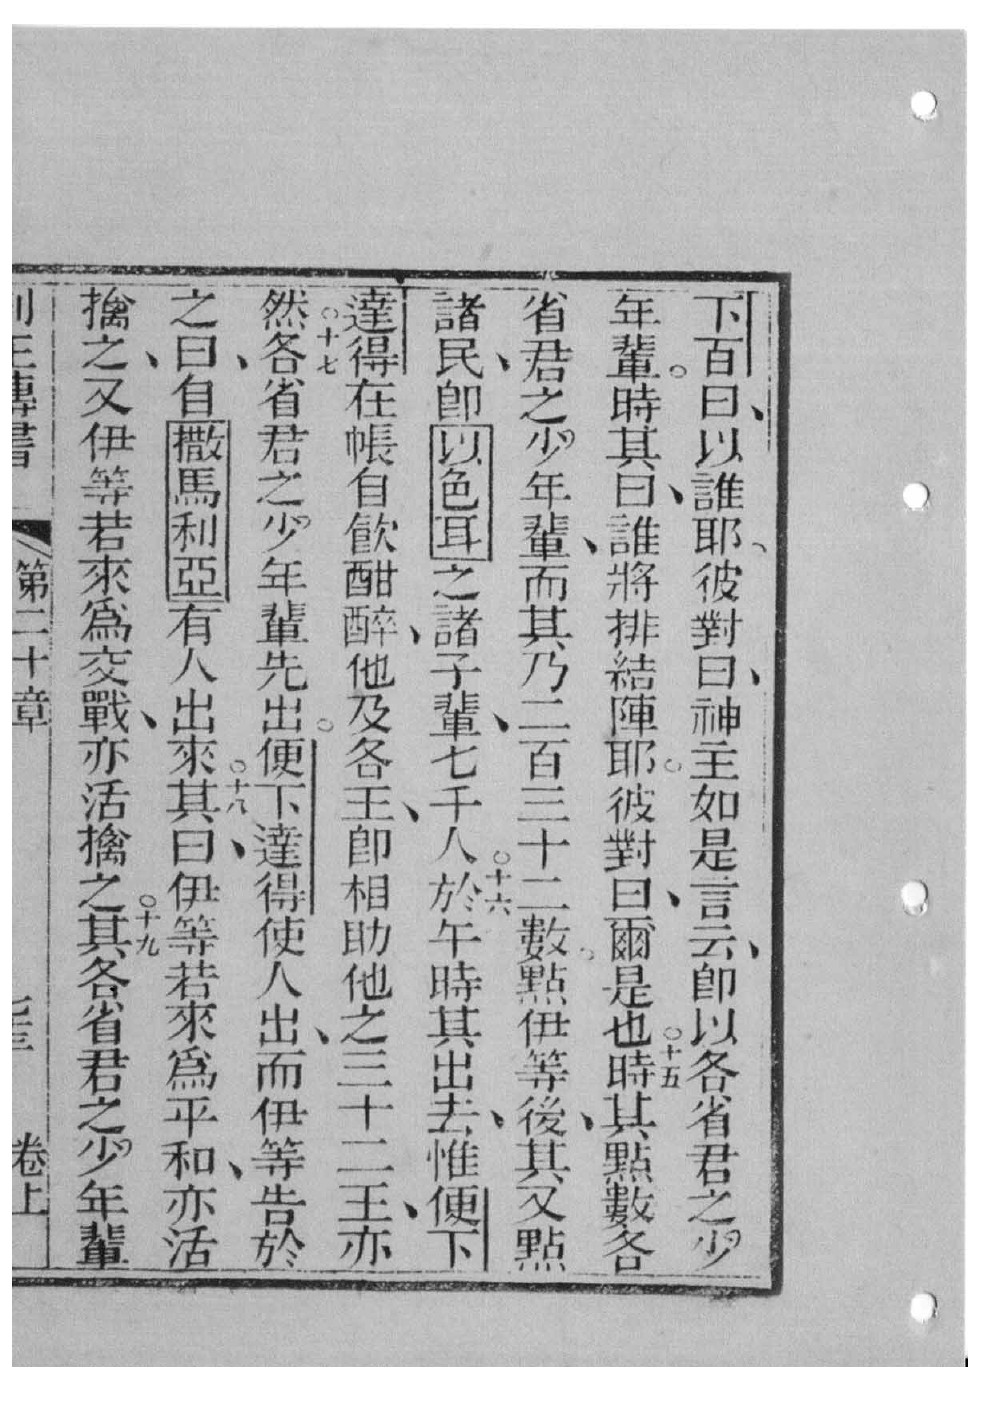 下百曰、以誰耶、彼對曰、神主如是言云、卽以各省君之少
年輩。時其曰、誰將排結陣耶。彼對曰、爾是也○十五時其點數各
省君之少年輩、而其乃二百三十二數。點伊等後、其又點
諸民、卽以色耳之諸子輩、七千人○十六於午時其出去、惟便下
達得在帳自飮酣醉、他及各王、卽相助他之三十二王、亦
然○十七各省君之少年輩先出。便下達得使人出、而伊等告於
之曰、自撒馬利亞有人出來○十八其曰、伊等若來爲平和、亦活
擒之、又伊等若來爲交戰、亦活擒之○十九其各省君之少年輩
列王傳書 第二十章 卷上